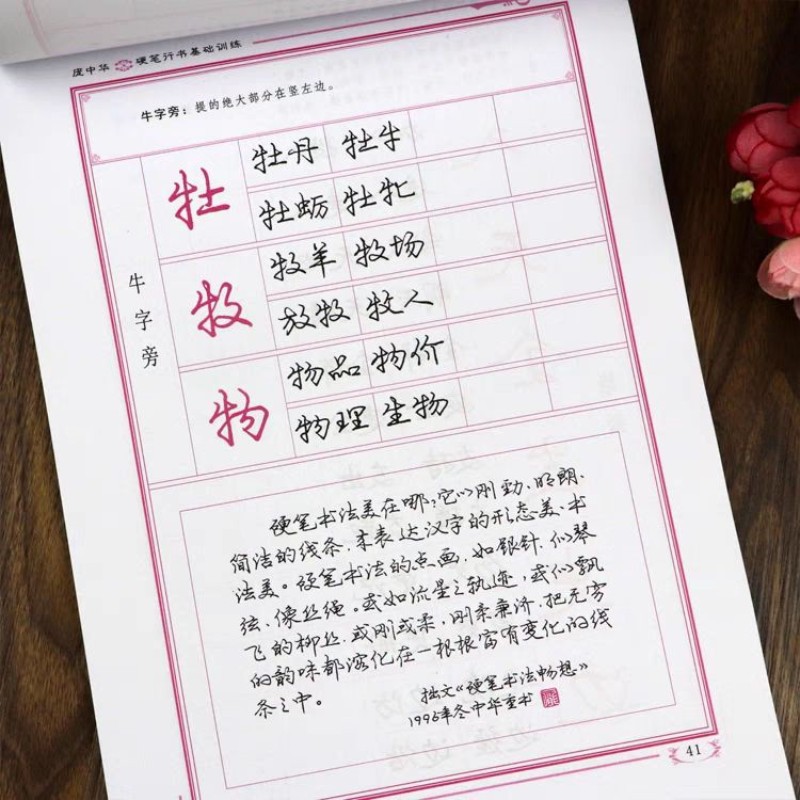 庞中华 硬笔行书基础训练
牛字旁：提的绝大部分在竖左边。
牛字旁
牡
牡丹 牡牛
牡蛎 牡牝
牧
牧羊 牧场
放牧 牧人
物
物品 物价
物理 生物
硬笔书法美在哪，它以刚劲、明朗、
简洁的线条，来表达汉字的形态美、书
法美。硬笔书法的点画，如银针，似琴
弦、像丝绳。或如流星之轨迹，或似飘
飞的柳丝，或刚或柔，刚柔兼济，把无穷
的韵味都溶化在一根根富有变化的线
条之中。
拙文《硬笔书法畅想》
1996年冬中华重书
41